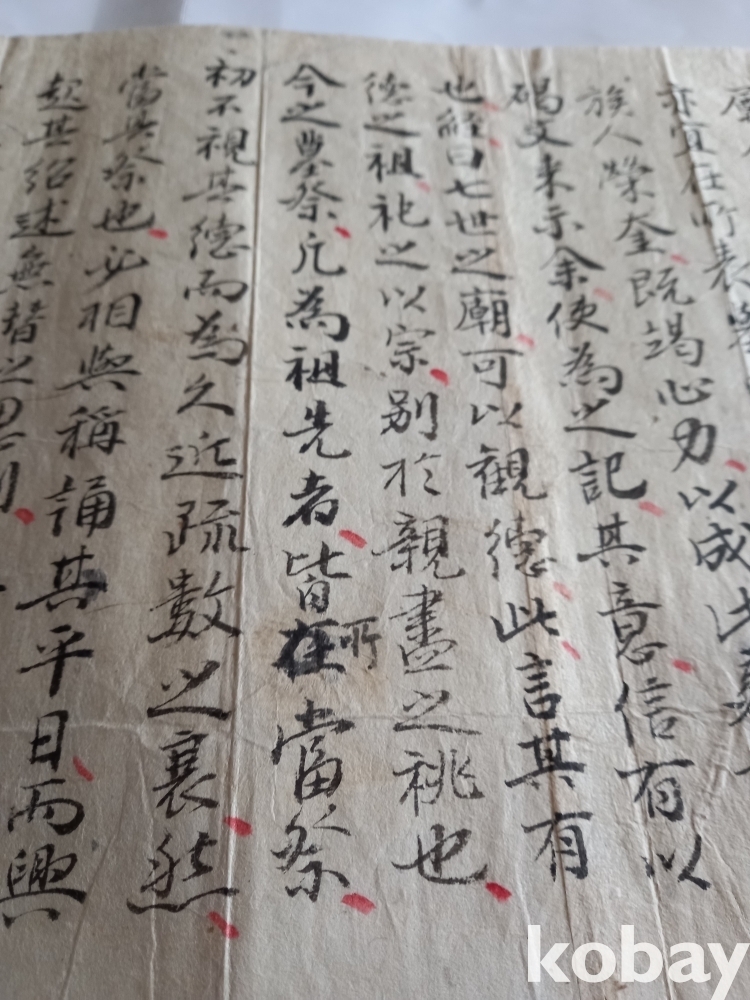 亦宜在所表
族人榮奎既竭心力以成此
碣文来示余使為之記其意信有以
也經曰七世之廟可以観德此言其有
德之祖祀之以宗別於親盡之祧也
今之墓祭凡為祖先者皆在所當祭
初不視其德而為久近疏數之
然
當其祭也必相與稱誦其平日而興
起其紹述無替之思則
kobay